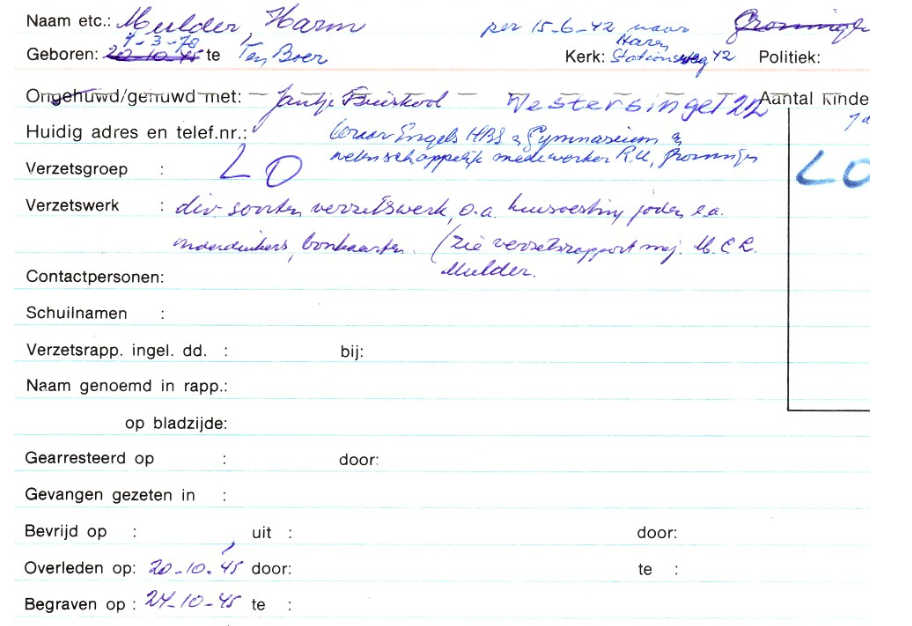 Naam etc.: Mulder, Harm per 15-6-42 naar Groningen
7-3-78 Haren
Geboren: 20-10-45 te Ten Boer Kerk: Stationsweg 42 Politiek:
Ongehuwd/gehuwd met: Jantje Buiskool Westersingel 22 Aantal kinde
Huidig adres en telef.nr.: leraar Engels HBS & Gymnasium &
wetenschappelijk medewerker R.U. Groningen
Verzetsgroep : LO LO
Verzetswerk : div. soorten verzetswerk, o.a. huisvesting joden e.a.
onderduikers, bonkaarten. (zie verzetsrapport mej. M.C.R.
Mulder.
Contactpersonen:
Schuilnamen :
Verzetsrapp. ingel. dd. : bij:
Naam genoemd in rapp.:
op bladzijde:
Gearresteerd op : door:
Gevangen gezeten in :
Bevrijd op : , uit : door:
Overleden op: 20-10-45 door: te :
Begraven op : 24-10-45 te :